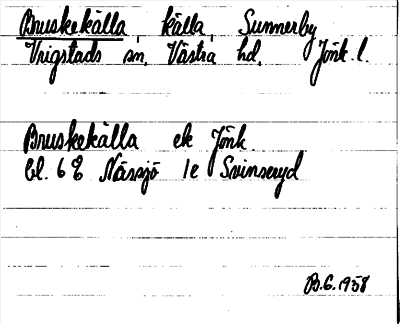 Bruskekälla, källa, Sunnerby
Vrigstads sn. Västra hd. Jönk. l.
Bruskekälla ek Jönk.
bl. 6E Nässjö 1e Svinseryd
B.G. 1958